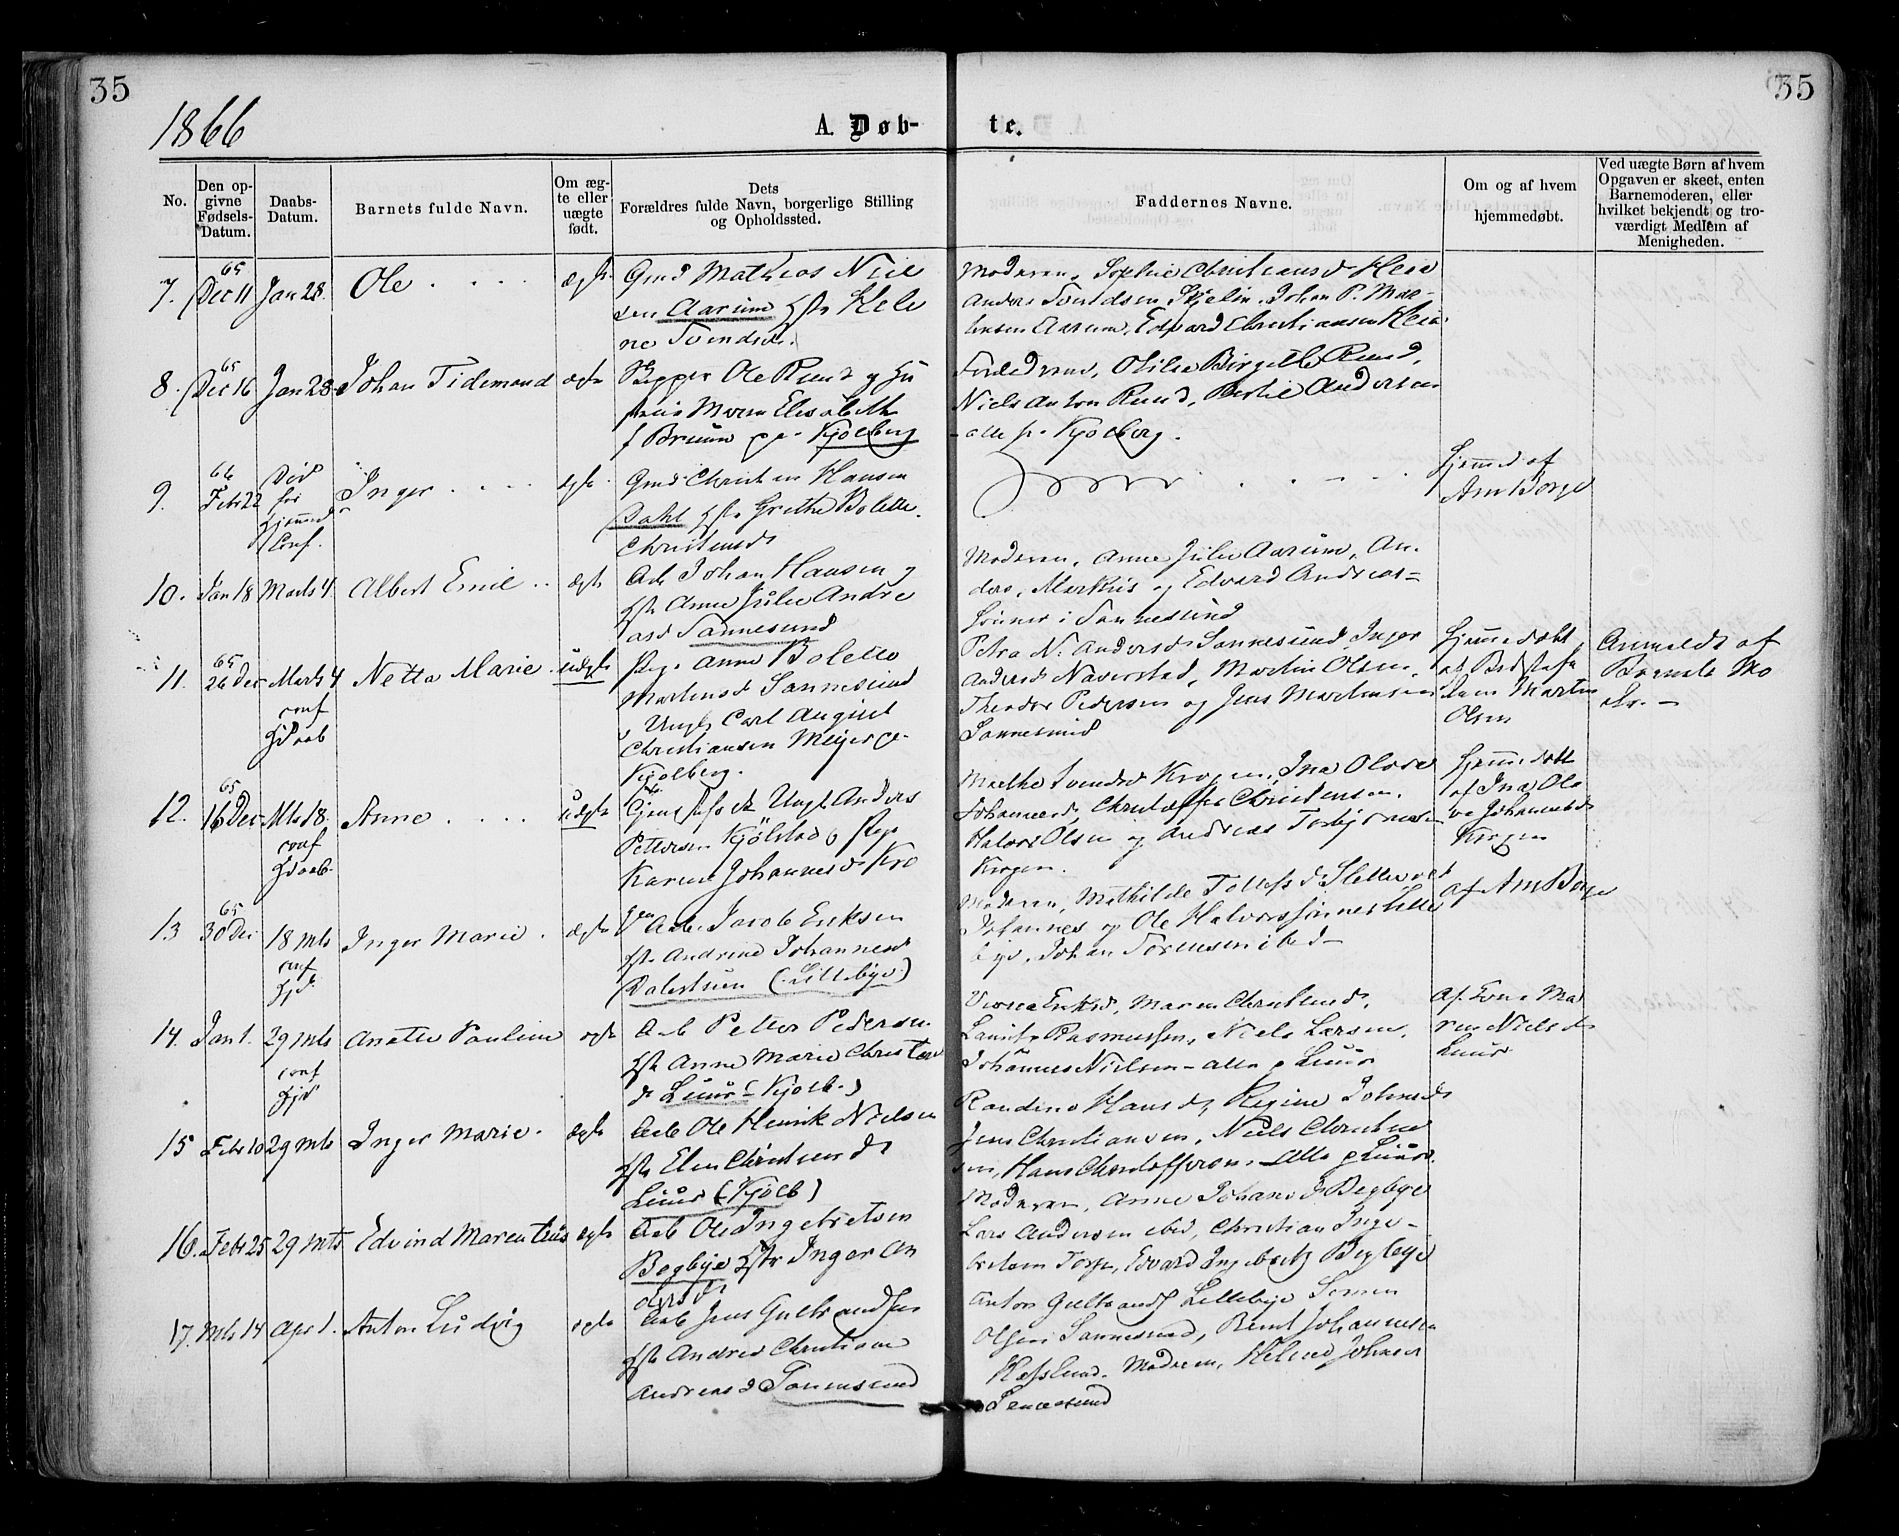 35
35
1866
A. Døb-
te.
No.
Den op-
givne
Fødsels-
Datum.
Daabs-
Datum.
Barnets fulde Navn.
Om æg-
te eller
uægte
født.
Dets
Forældres fulde Navn, borgerlige Stilling
og Opholdssted.
Faddernes Navne.
Om og af hvem
hjemmedøbt.
Ved uægte Børn af hvem
Opgaven er skeet, enten
Barnemoderen, eller
hvilket bekjendt og tro-
værdigt Medlem af
Menigheden.
7. 65 Dec 11 Jan 28. Ole ægte
Gmd Mathias Niel
sen Aarum Hele
ne Svendsd.
Moderen, Sophie Christiansd
Anders Svendsen Skjelin, Johan P. Mar-
tinsen Aarum, Edvard Christiansen
8. 65 Dec 16 Jan 28 Johan Tidemand ægte
Ole Ruud og Hu
struu Maren Elisabeth
f Bruun Kjølberg
Forældrene, Otilie Birgitte Ruud,
Niels Anton Ruud, Andersen
alle Kjølberg.
9. 66 Febr 22 Død før Hjemmed Conf. Inger ægte
Gmd Christian Hansen
Dahl Grethe Bolette
Christensd
Hjemmed af
Am Borge
10. Jan 18 Marts 4 Albert Emil ægte
Arb Johan Hansen og
Anne Julie Andre
asd Sannesund
Moderen, Anne Julie Aarum, An-
ders, Markus og Edvard Andreas-
sønner i Sannesund
11. 65 26 Dec Marts 4 conf Hdaab Netta Marie uægte
Pige Anna Bolette
Martinsd Sannesund
Ungk Carl August
Christiansen Meijer
Kjølberg.
Petra N. Andersd Sannesund, Inger
Andersd Naverstad, Martin Olsen,
Theodor Pedersen og Jens Martinsen
Sannesund
Hjemmedøbt
af Bedstefa
deren Martin
Olsen
Anmeldt af
Barnets Mo
der.
12. 65 16 Dec Mts 18. conf Hdaab Anne uægte
Ungk Anders
Pettersen Kjølstad og Pige
Karen Johannesd Kro
gen
Marthe Svendsd Krogen, Ina Olova
Johannesd, Christoffer Christensen,
Halvor Olsen og Andreas Torbjørnsen
Krogen.
Hjemmedøbt
af Ina Olo
va Johannesd
Krogen
13 65 30 Dec 18 Mts conf Hjd. Inger Marie ægte
Arb. Jacob Eriksen
Andrine Johannesd
(Lillebye)
Moderen, Mathilde Tollefsd
Johannes og Ole Halvorssønner Lille
bye, Johan Sørensen ibed
af Am Borge
14. Jan 1. 29 Mts conf Hjd Anette Pauline ægte
Arb Petter Pedersen
Anne Marie Christens
d Luur (Kjølb.)
Eriksd, Maren Christensd,
Lauritz Rasmussen, Niels Larsen,
Johannes Nielsen - alle p Luur
af Ma
ren Nielsd
Luur
15 Febr 10 29 Mts Inger Marie ægte
Arb Ole Henrik Nielsen
Elen Christensd
Luur (Kjølb)
Randine Hansd, Regine Johnsd
Jens Christiansen, Niels Christen
sen, Hans Christoffersen - Alle p Luur.
16. Febr 25 29 Mts Edvind Marentius ægte
Arb Ole Ingebretsen
Begbye Inger An
dersd
Moderen, Anne Johansd Begbye
Lars Andersen ibed, Christian Inge-
bretsen Torp, Edvard Ingebretz Begbye
17. Mts 14 Apr 1. Anton Ludvig ægte
Arb Jens Gulbrandsen
Andrea Christiane
Andreasd Sannesund
Anton Gulbrands Lillebye Simen
Olsen Sannesund, Bernt Johannesen
Hafslund. Moderen, Helene Johanes
Sannesund